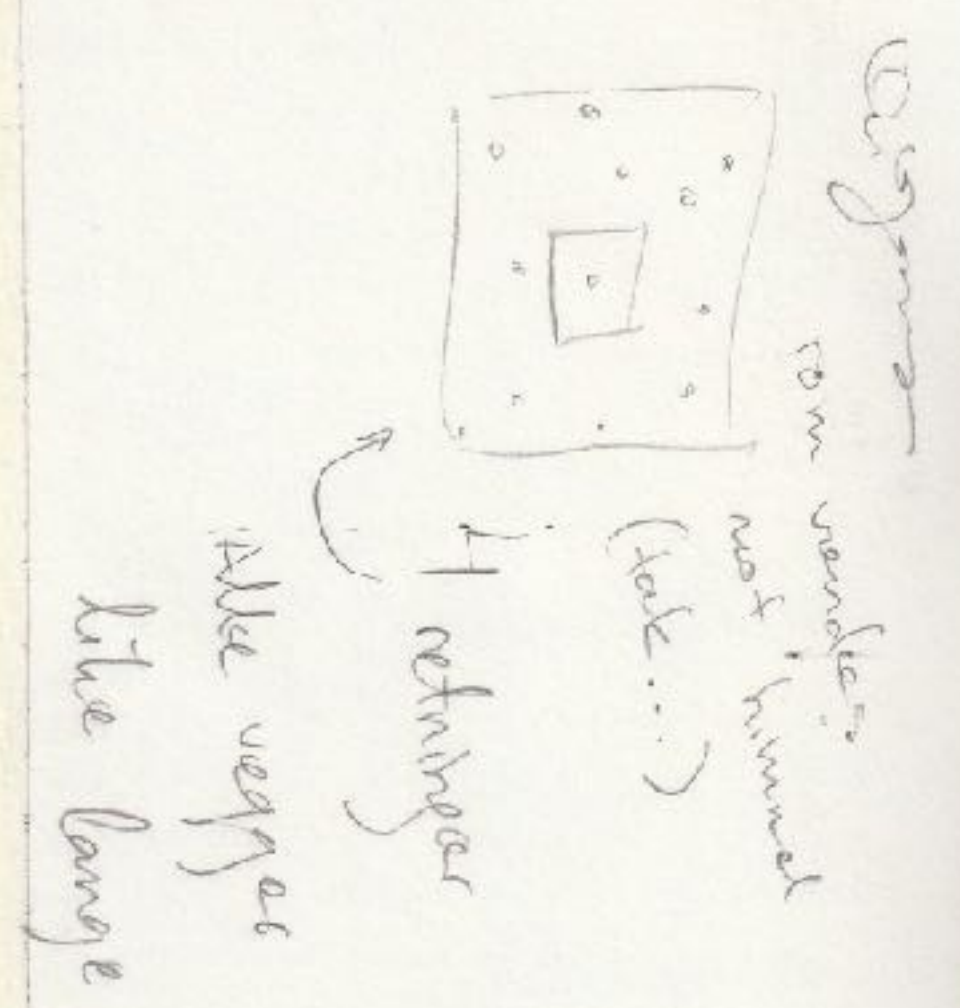 rom vender
mot himmel
(tak...)
4 retninger
Alle vegger
like lange